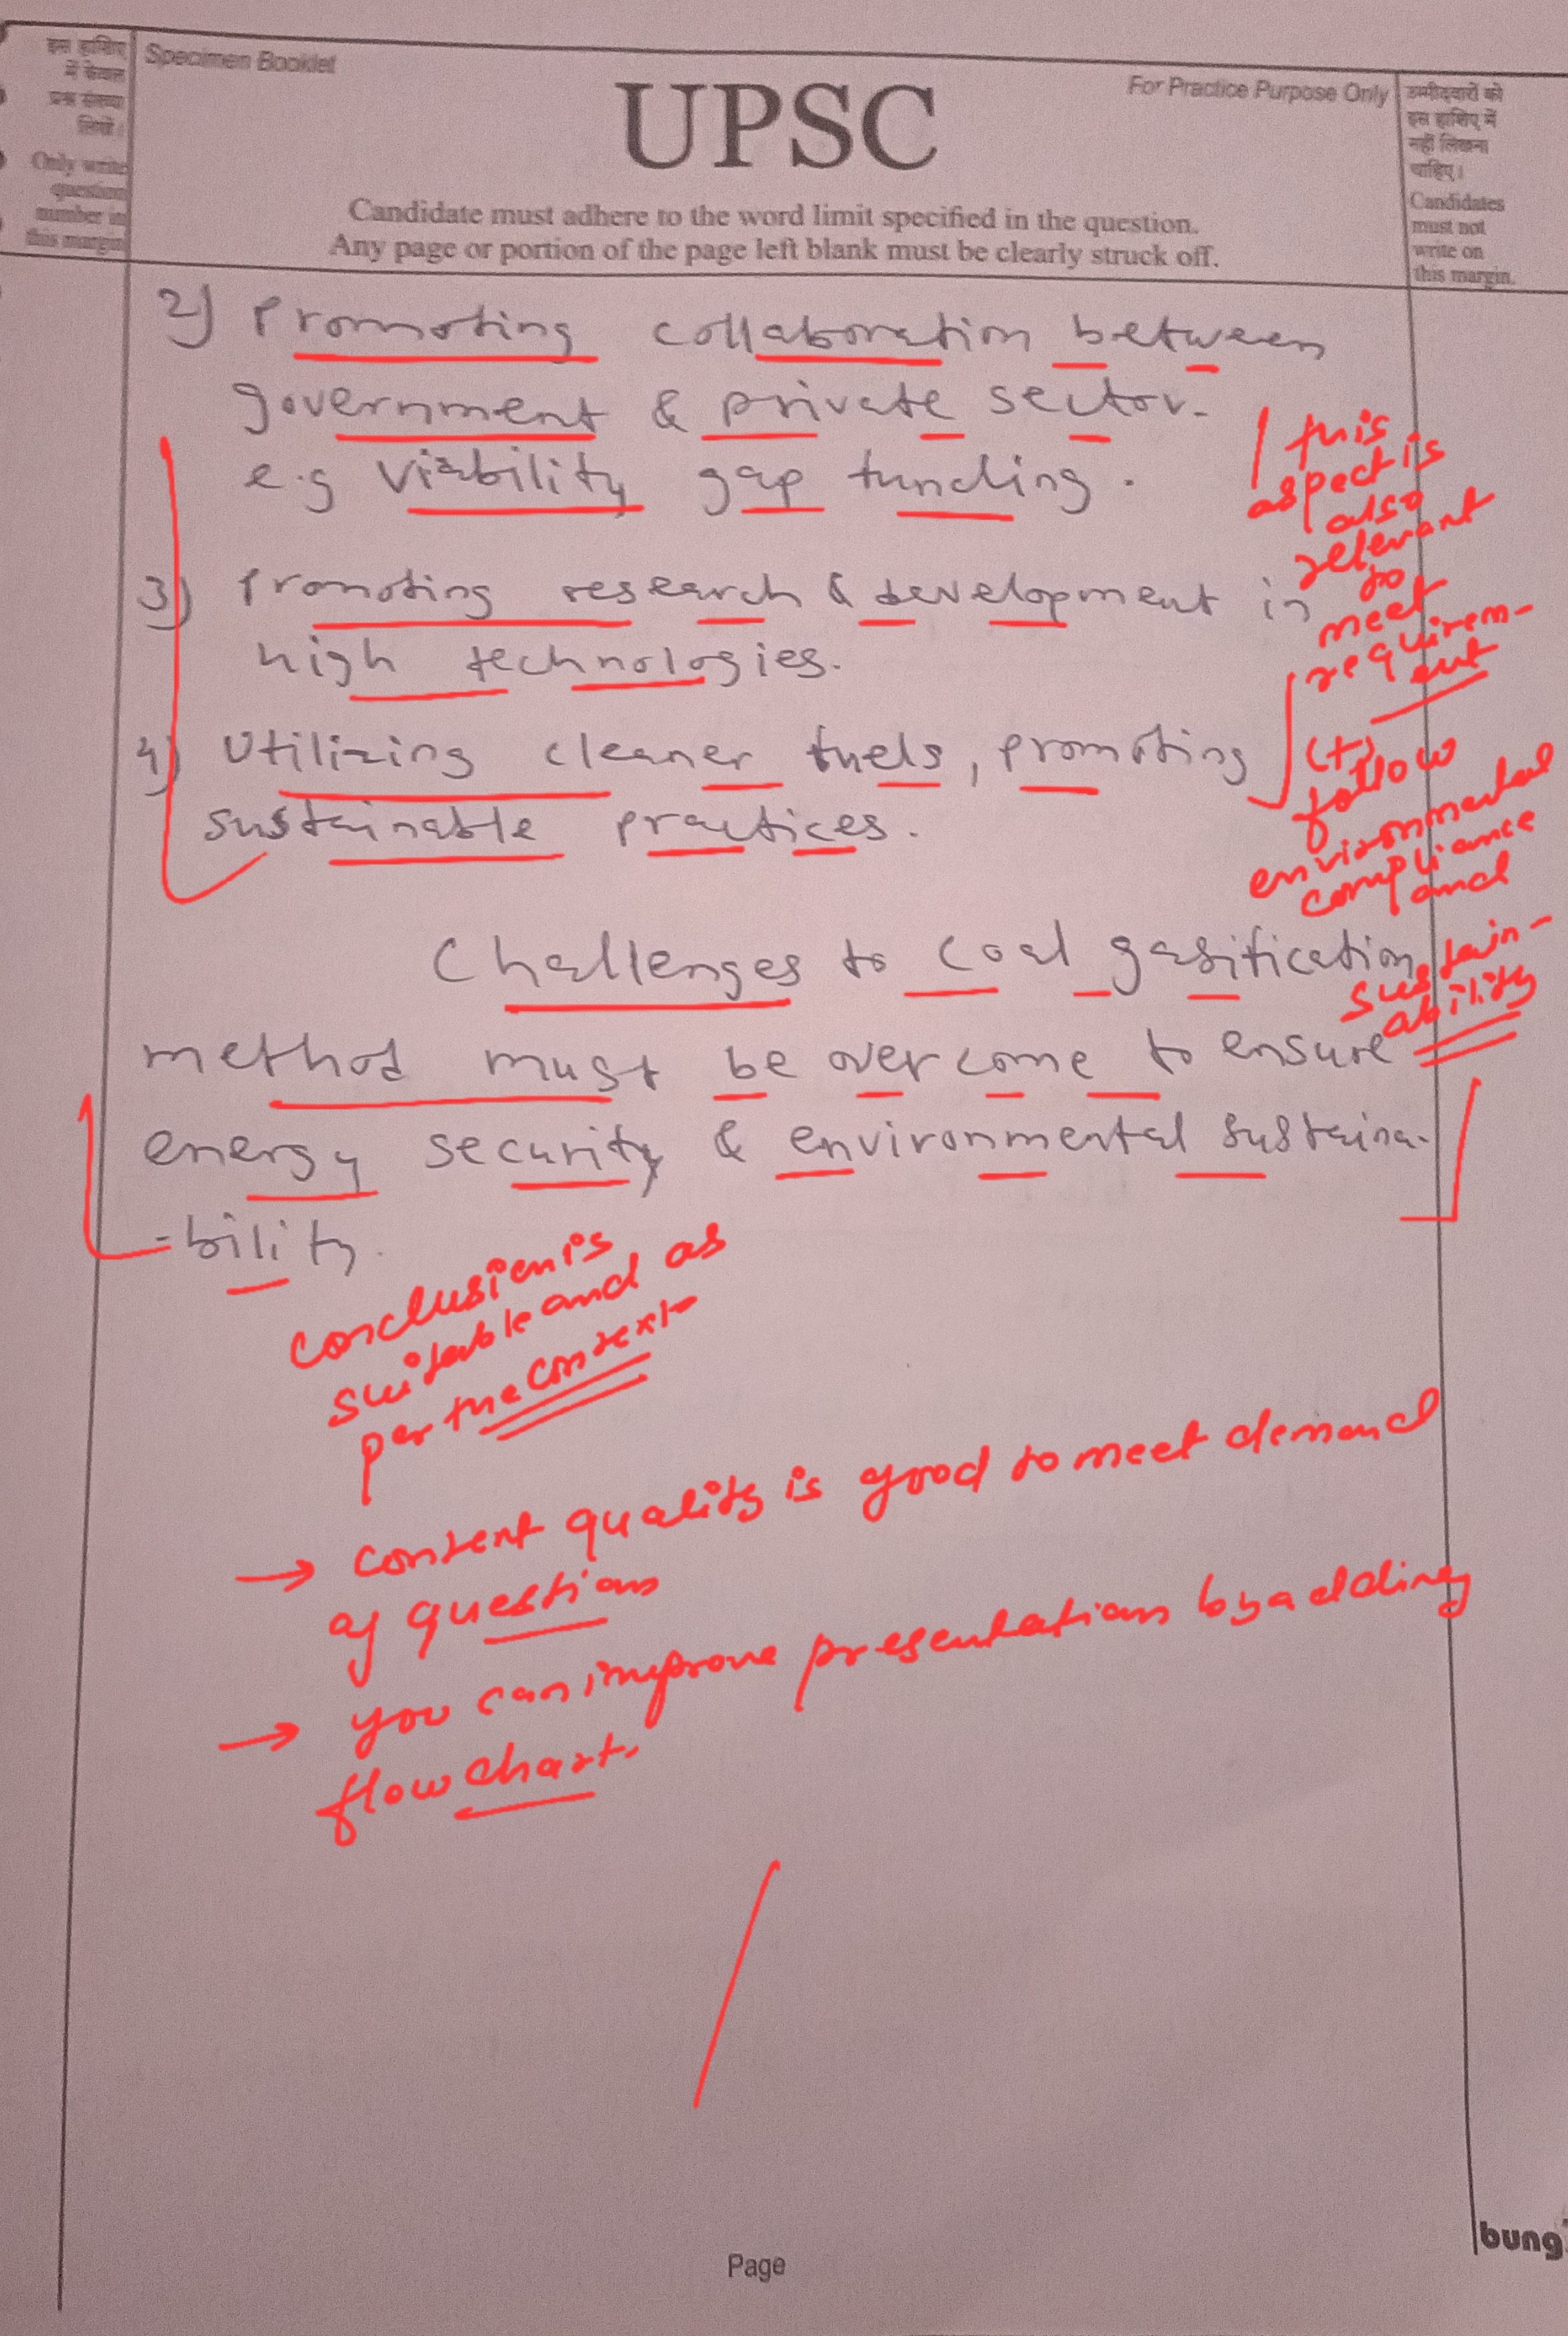 इस हाशिए
में केवल
प्रश्न संख्या
लिखें।
Only write
question
number in
this margin
Specimen Booklet
UPSC
For Practice Purpose Only
Candidate must adhere to the word limit specified in the question.
Any page or portion of the page left blank must be clearly struck off.
उम्मीदवारों को
इस हाशिए में
नहीं लिखना
चाहिए।
Candidates
must not
write on
this margin.
2) Promoting collaboration between
government & private sector.
e.g Viability gap funding.
3) Promoting research & development in
high technologies.
4) Utilizing cleaner fuels, promoting
sustainable practices.
this
aspect is
also
relevant
to
meet
requirem-
ent
(+)
follow
environmental
compliance
and
sustain-
ability
Challenges to coal gasification
method must be overcome to ensure
energy security & environmental sustaina-
-bility.
conclusion is
suitable and as
per the context
→ content quality is good to meet demand
of question
→ you can improve presentation by adding
flow chart.
Page
bung